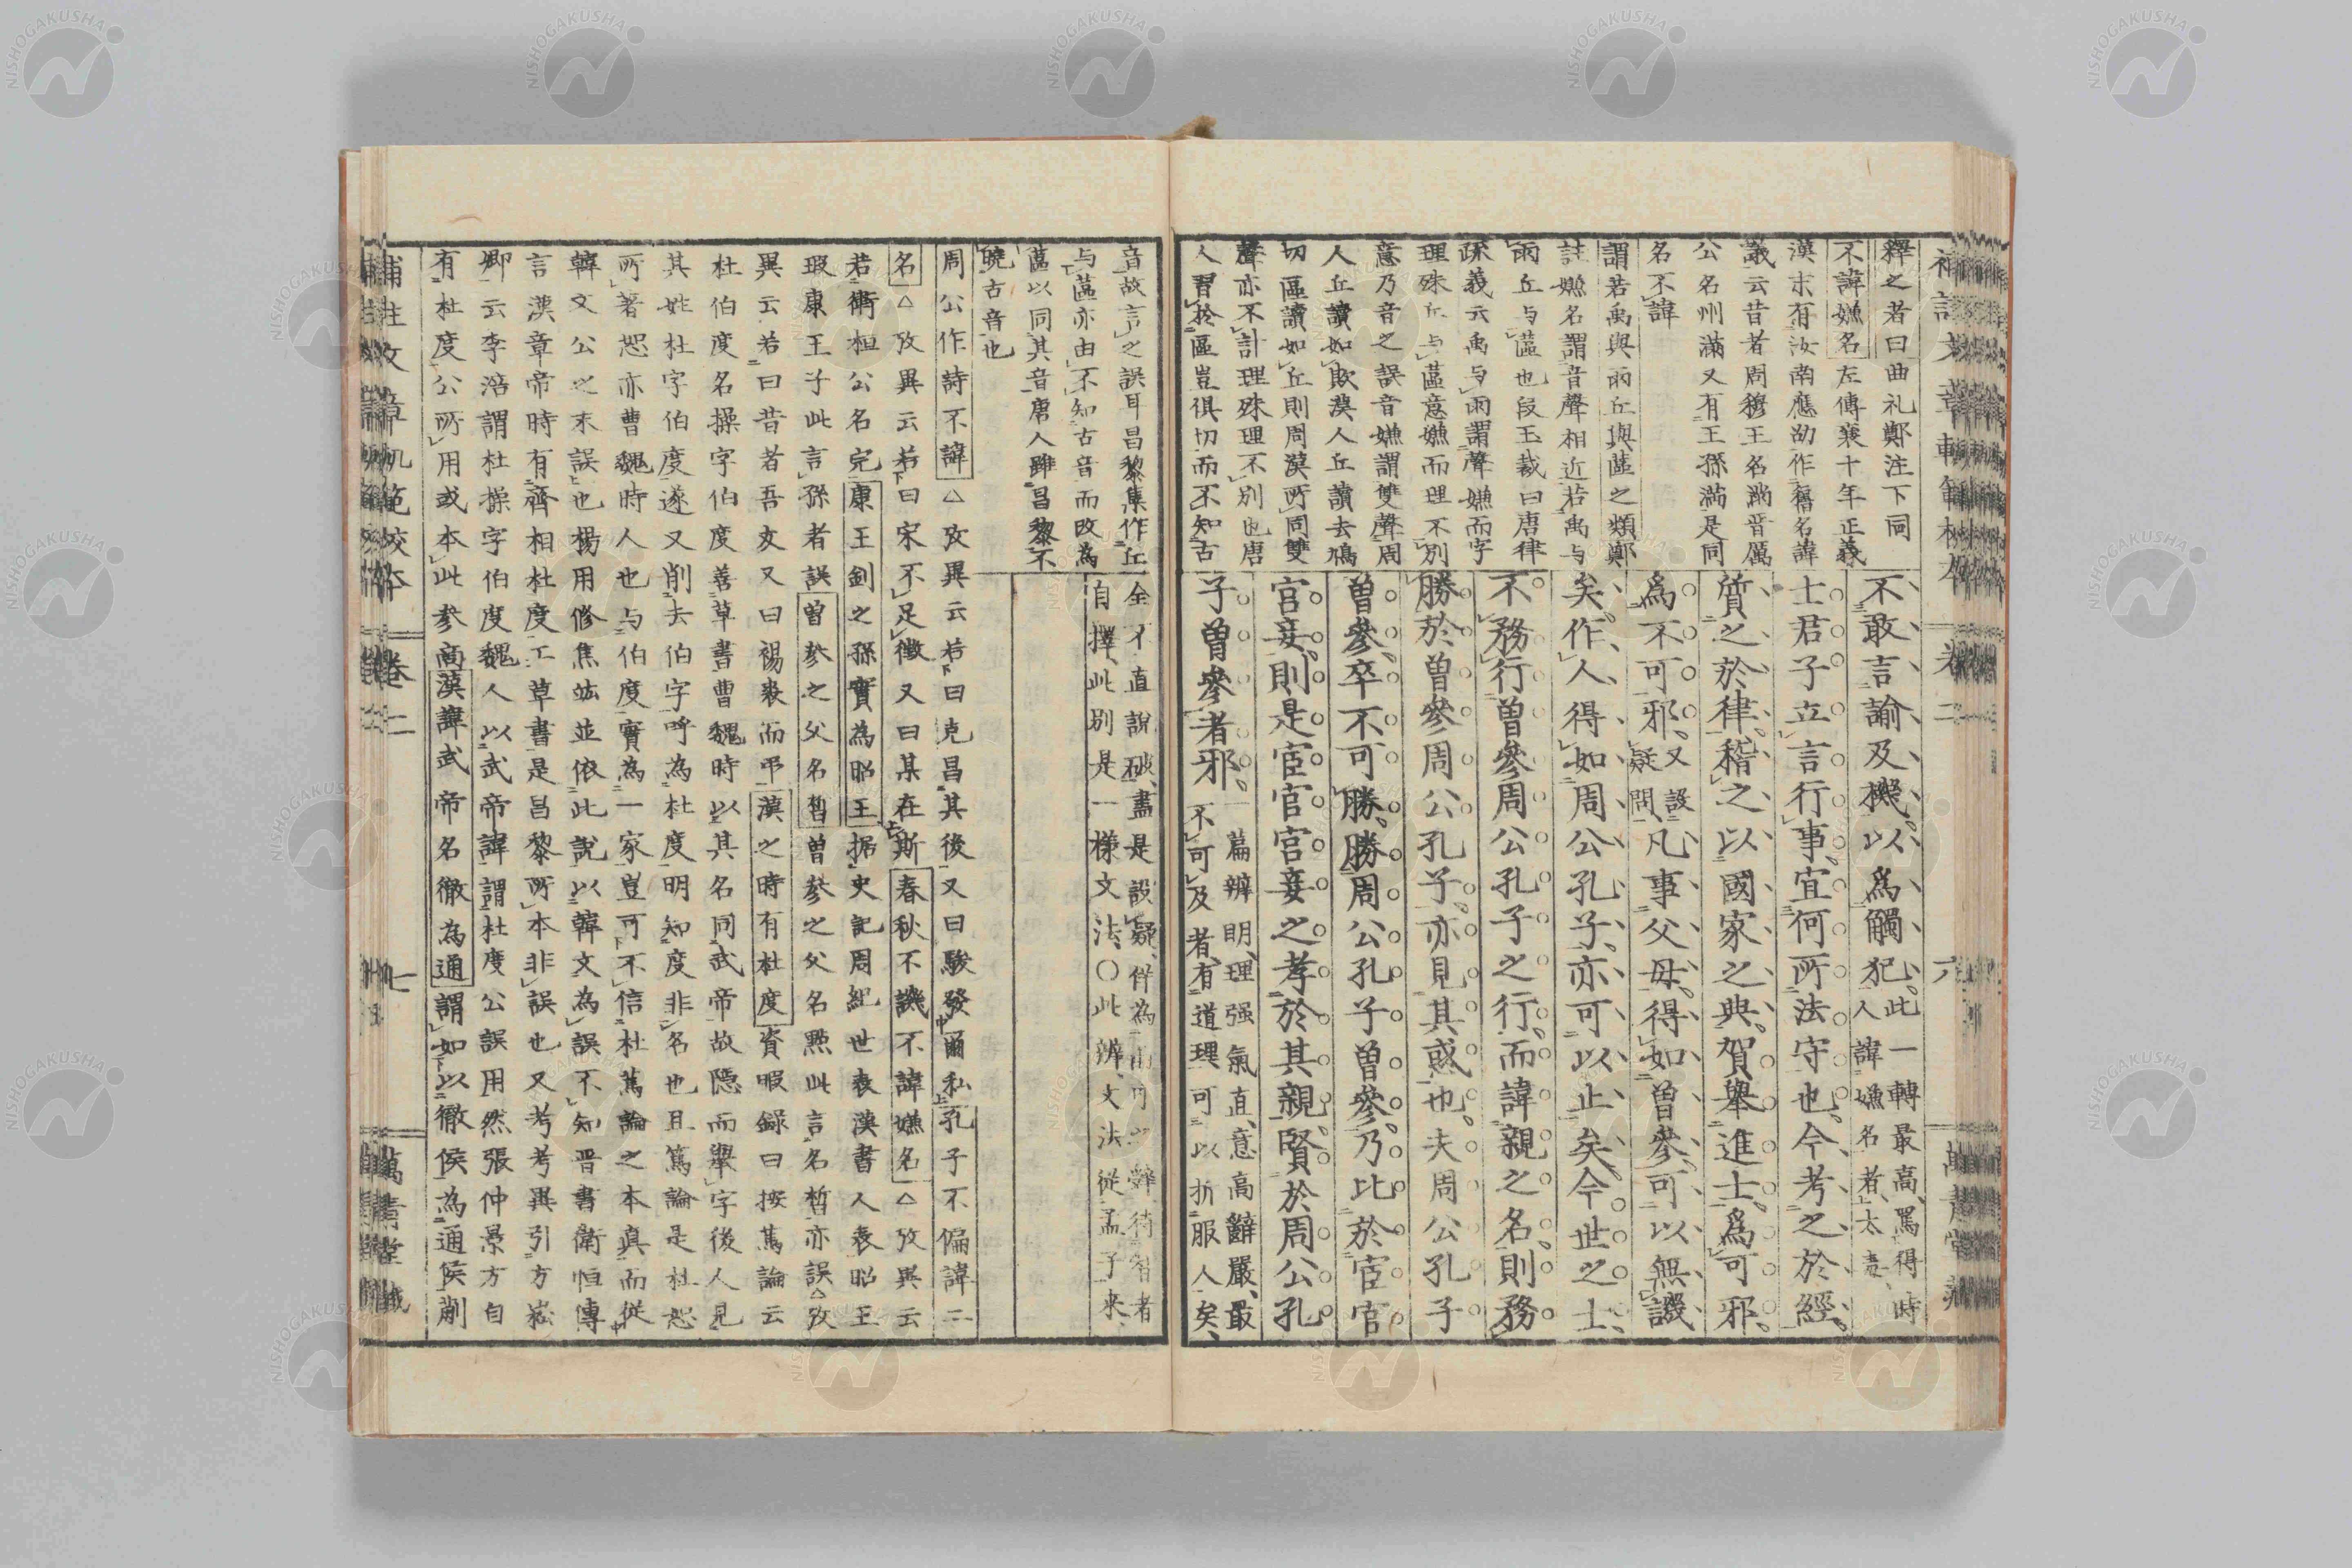 釋之者曰曲礼鄭注下同
不諱嫌名左傳襄十年正義
漢末有汝南應劭作舊名諱
議云昔者周穆王名滿晋厲
公名州滿又有王孫滿是同
名不諱
謂若禹與雨丘與蓲之類鄭
註嫌名謂音聲相近若禹与
雨丘与蓲也段玉裁曰唐律
疏義云禹与雨謂聲嫌而字
理殊丘与蓲意嫌而理不別
意乃音之誤音嫌謂雙聲周
人丘讀如欺漢人丘讀去鳩
切區讀如丘則周漢所同雙
聲亦不計理殊理不別也唐
人習於區豈俱切而不知古
不敢言諭及機以爲觸犯此一轉最高罵得時
人諱嫌名者太毒
士君子立言行事宜何所法守也今考之於經
質之於律稽之以國家之典賀舉進士爲可邪
爲不可邪又設疑問凡事父母得如曾參可以無譏
矣作人得如周公孔子亦可以止矣今世之士
不務行曾參周公孔子之行而諱親之名則務
勝於曾參周公孔子亦見其惑也夫周公孔子
曾參卒不可勝勝周公孔子曾參乃比於宦官
宮妾則是宦官宮妾之孝於其親賢於周公孔
子曾參者邪一篇辨明理强氣直意高辭嚴最
不可及者有道理可以折服人矣
音故言之誤耳昌黎集作丘
与蓲亦由不知古音而改為
蓲以同其音唐人雖昌黎不
曉古音也
全不直說破盡是設疑佯為兩可之辭待智者
自擇此別是一樣文法〇此辨文法從孟子來
周公作詩不諱△攷異云若曰克昌其後又曰駿發爾私孔子不偏諱二
名△攷異云若曰宋不足徵又曰某在斯春秋不譏不諱嫌名△攷異云
若衛桓公名完康王釗之孫實為昭王据史記周紀世表漢書人表昭王
瑕康王子此言孫者誤曾參之父名晳曾參之父名點此言名晳亦誤△攷
異云若曰昔者吾友又曰裼裘而弔漢之時有杜度資暇録曰按篤論云
杜伯度名操字伯度善草書曹魏時以其名同武帝故隠而舉字後人見
其姓杜字伯度遂又削去伯字呼為杜度明知度非名也且篤論是杜恕
所著恕亦曹魏時人也与伯度實為一家豈可不信杜篤論之本真而従
韓文公之末誤也楊用修焦竑並依此說以韓文為誤不知晋書衛恒傳
言漢章帝時有齊相杜度工草書是昌黎所本非誤也又考考異引方崧
卿云李涪謂杜操字伯度魏人以武帝諱謂杜度公誤用然張仲景方自
有杜度公所用或本此參商漢諱武帝名徹為通謂如以徹侯為通侯蒯
補註文章軌範校本
卷二
七
萬青堂藏